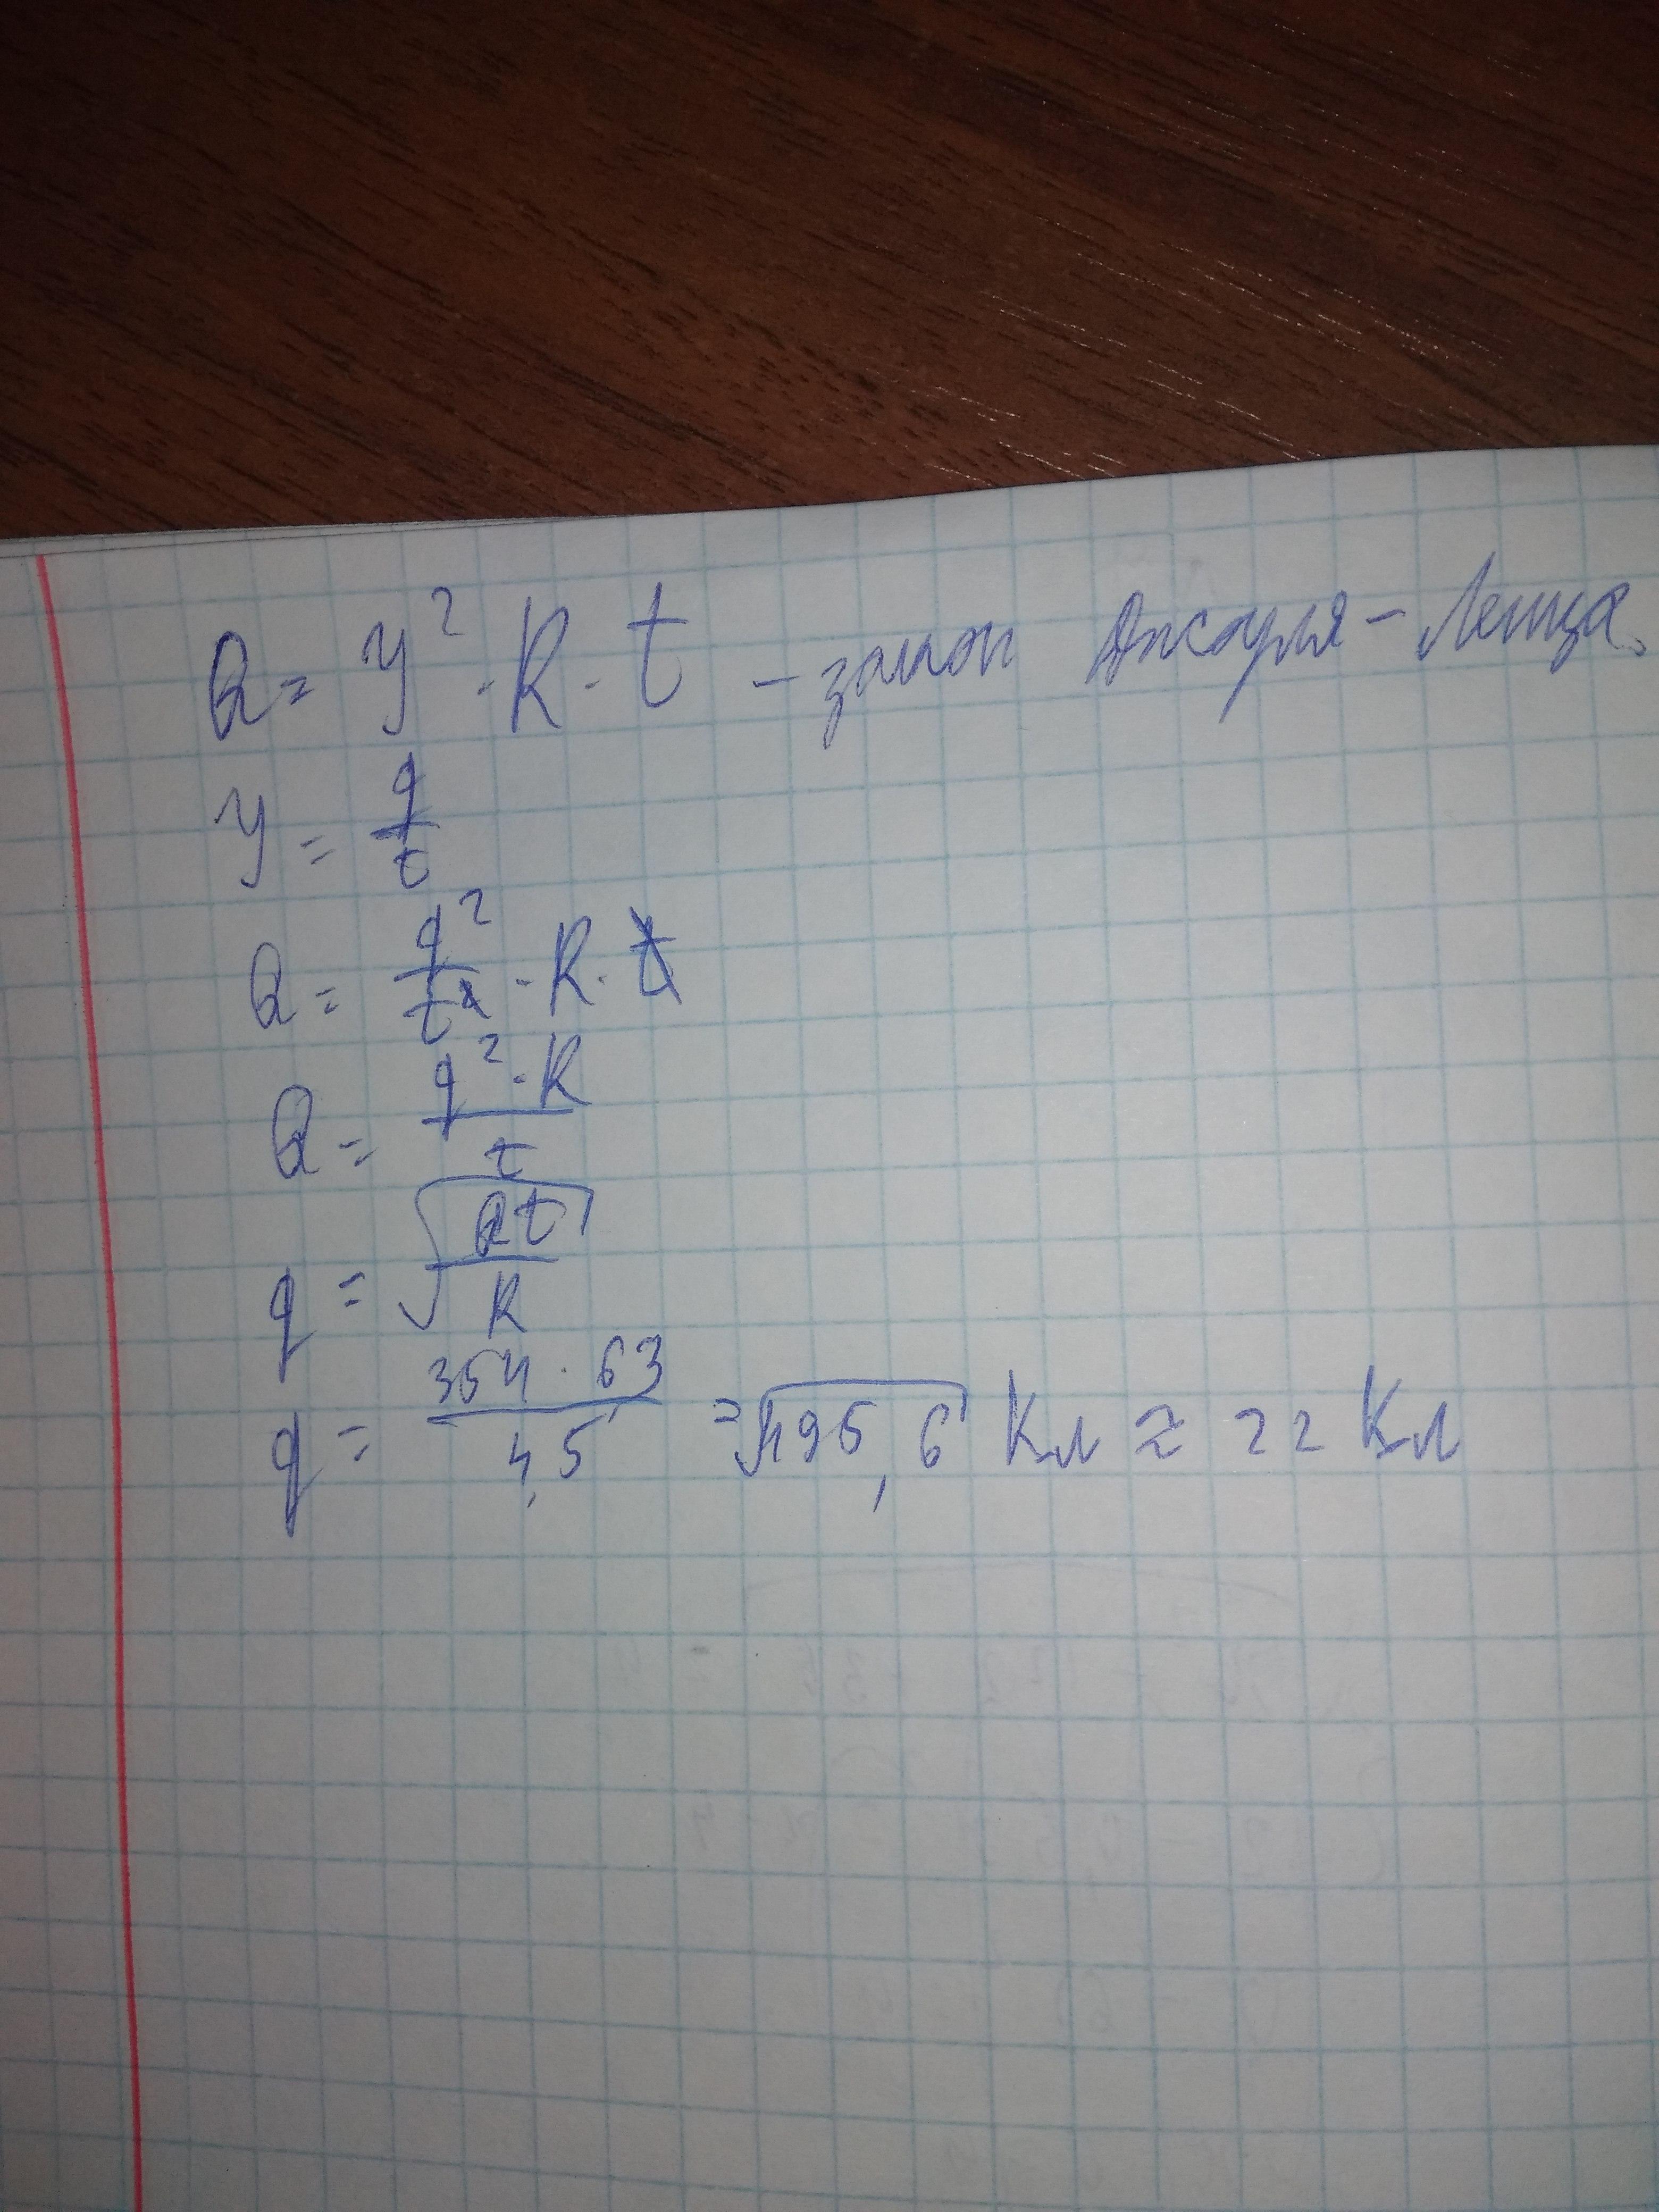 Q = y² · R · t – закон Джоуля – Ленца.
y = q/t
Q = q²/t² · R · t
Q = q² · R/t
q = √Qt/R
q = 354 · 63/4,5 = √495,6 Кл ≈ 22 Кл